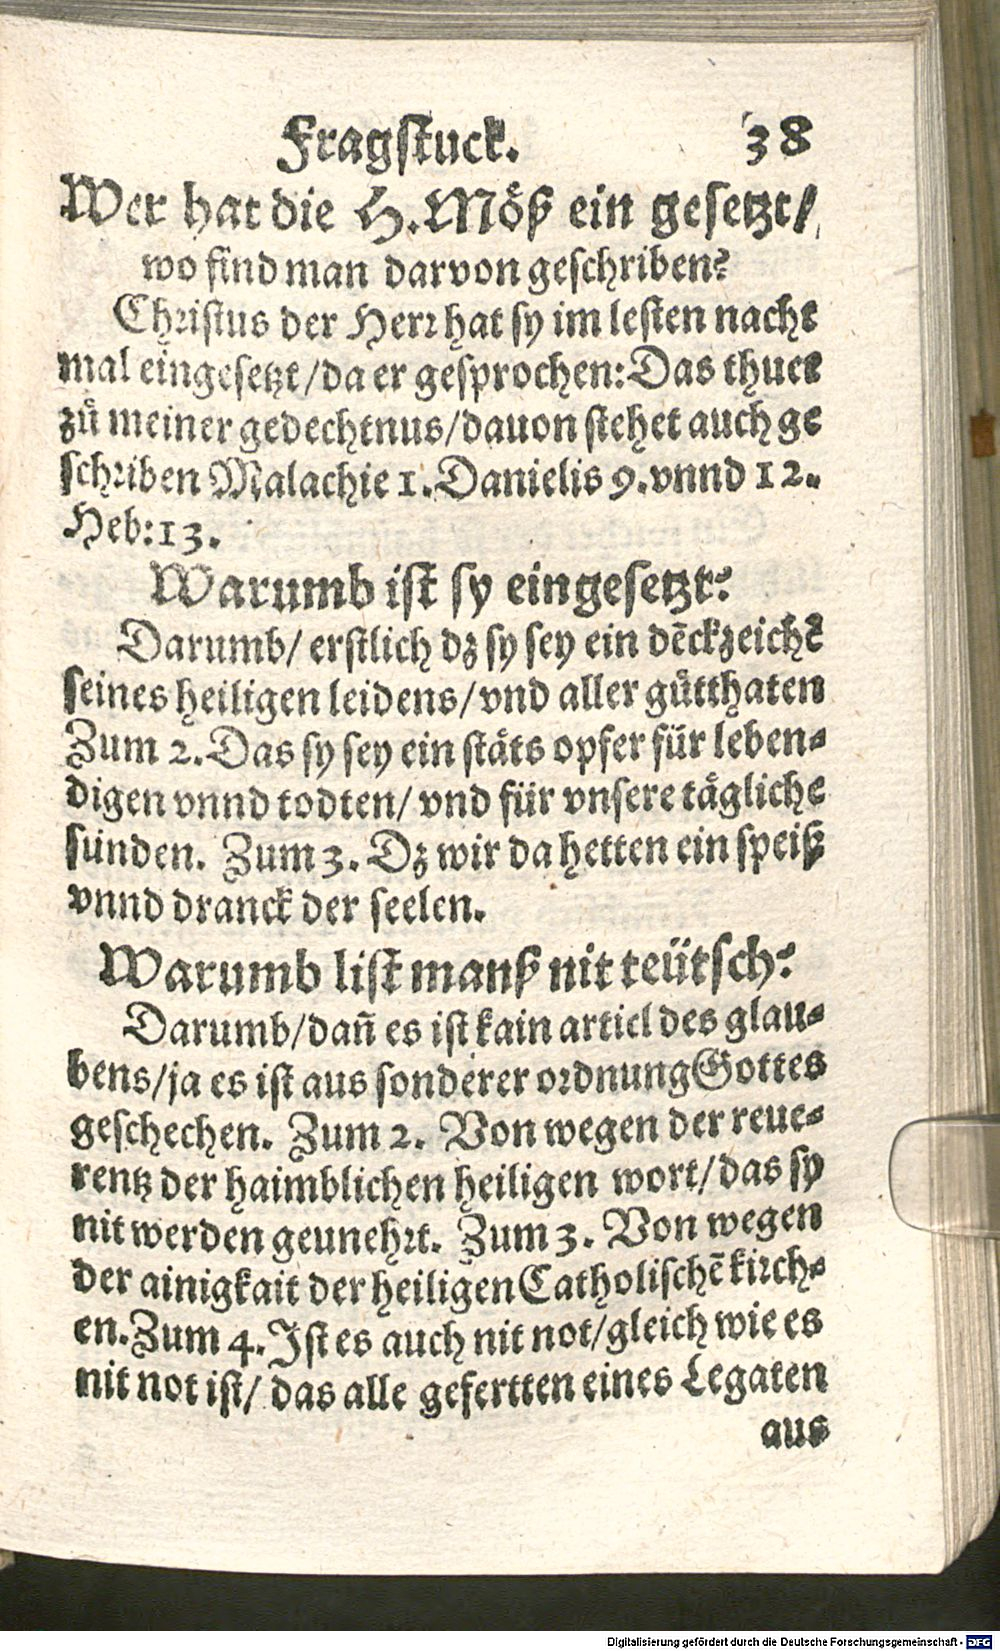 Fragstuck. 38
Wer hat die H. Möß ein gesetzt/
wo find man darvon geschriben?
Christus der Herr hat sy im lesten nacht
mal eingesetzt/da er gesprochen: Das thuet
zů meiner gedechtnus/dauon stehet auch ge
schriben Malachie 1. Danielis 9. vnnd 12.
Heb: 13.
Warumb ist sy eingesetzt?
Darumb/ erstlich dz sy sey ein dēckzeichē
seines heiligen leidens/vnd aller gůtthaten
Zum 2. Das sy sey ein stäts opfer für leben-
digen vnnd todten/ vnd für vnsere tägliche
sünden. Zum 3. Dz wir da hetten ein speiß
vnnd dranck der seelen.
Warumb list manß nit teütsch?
Darumb/dañ es ist kain articl des glau-
bens/ja es ist aus sonderer ordnung Gottes
geschechen. Zum 2. Von wegen der reue-
rentz der haimblichen heiligen wort/das sy
nit werden geunehrt. Zum 3. Von wegen
der ainigkait der heiligen Catholischē kirch-
en. Zum 4. Ist es auch nit not/gleich wie es
nit not ist/ das alle gefertten eines Legaten
aus
Digitalisierung gefördert durch die Deutsche Forschungsgemeinschaft - DFG